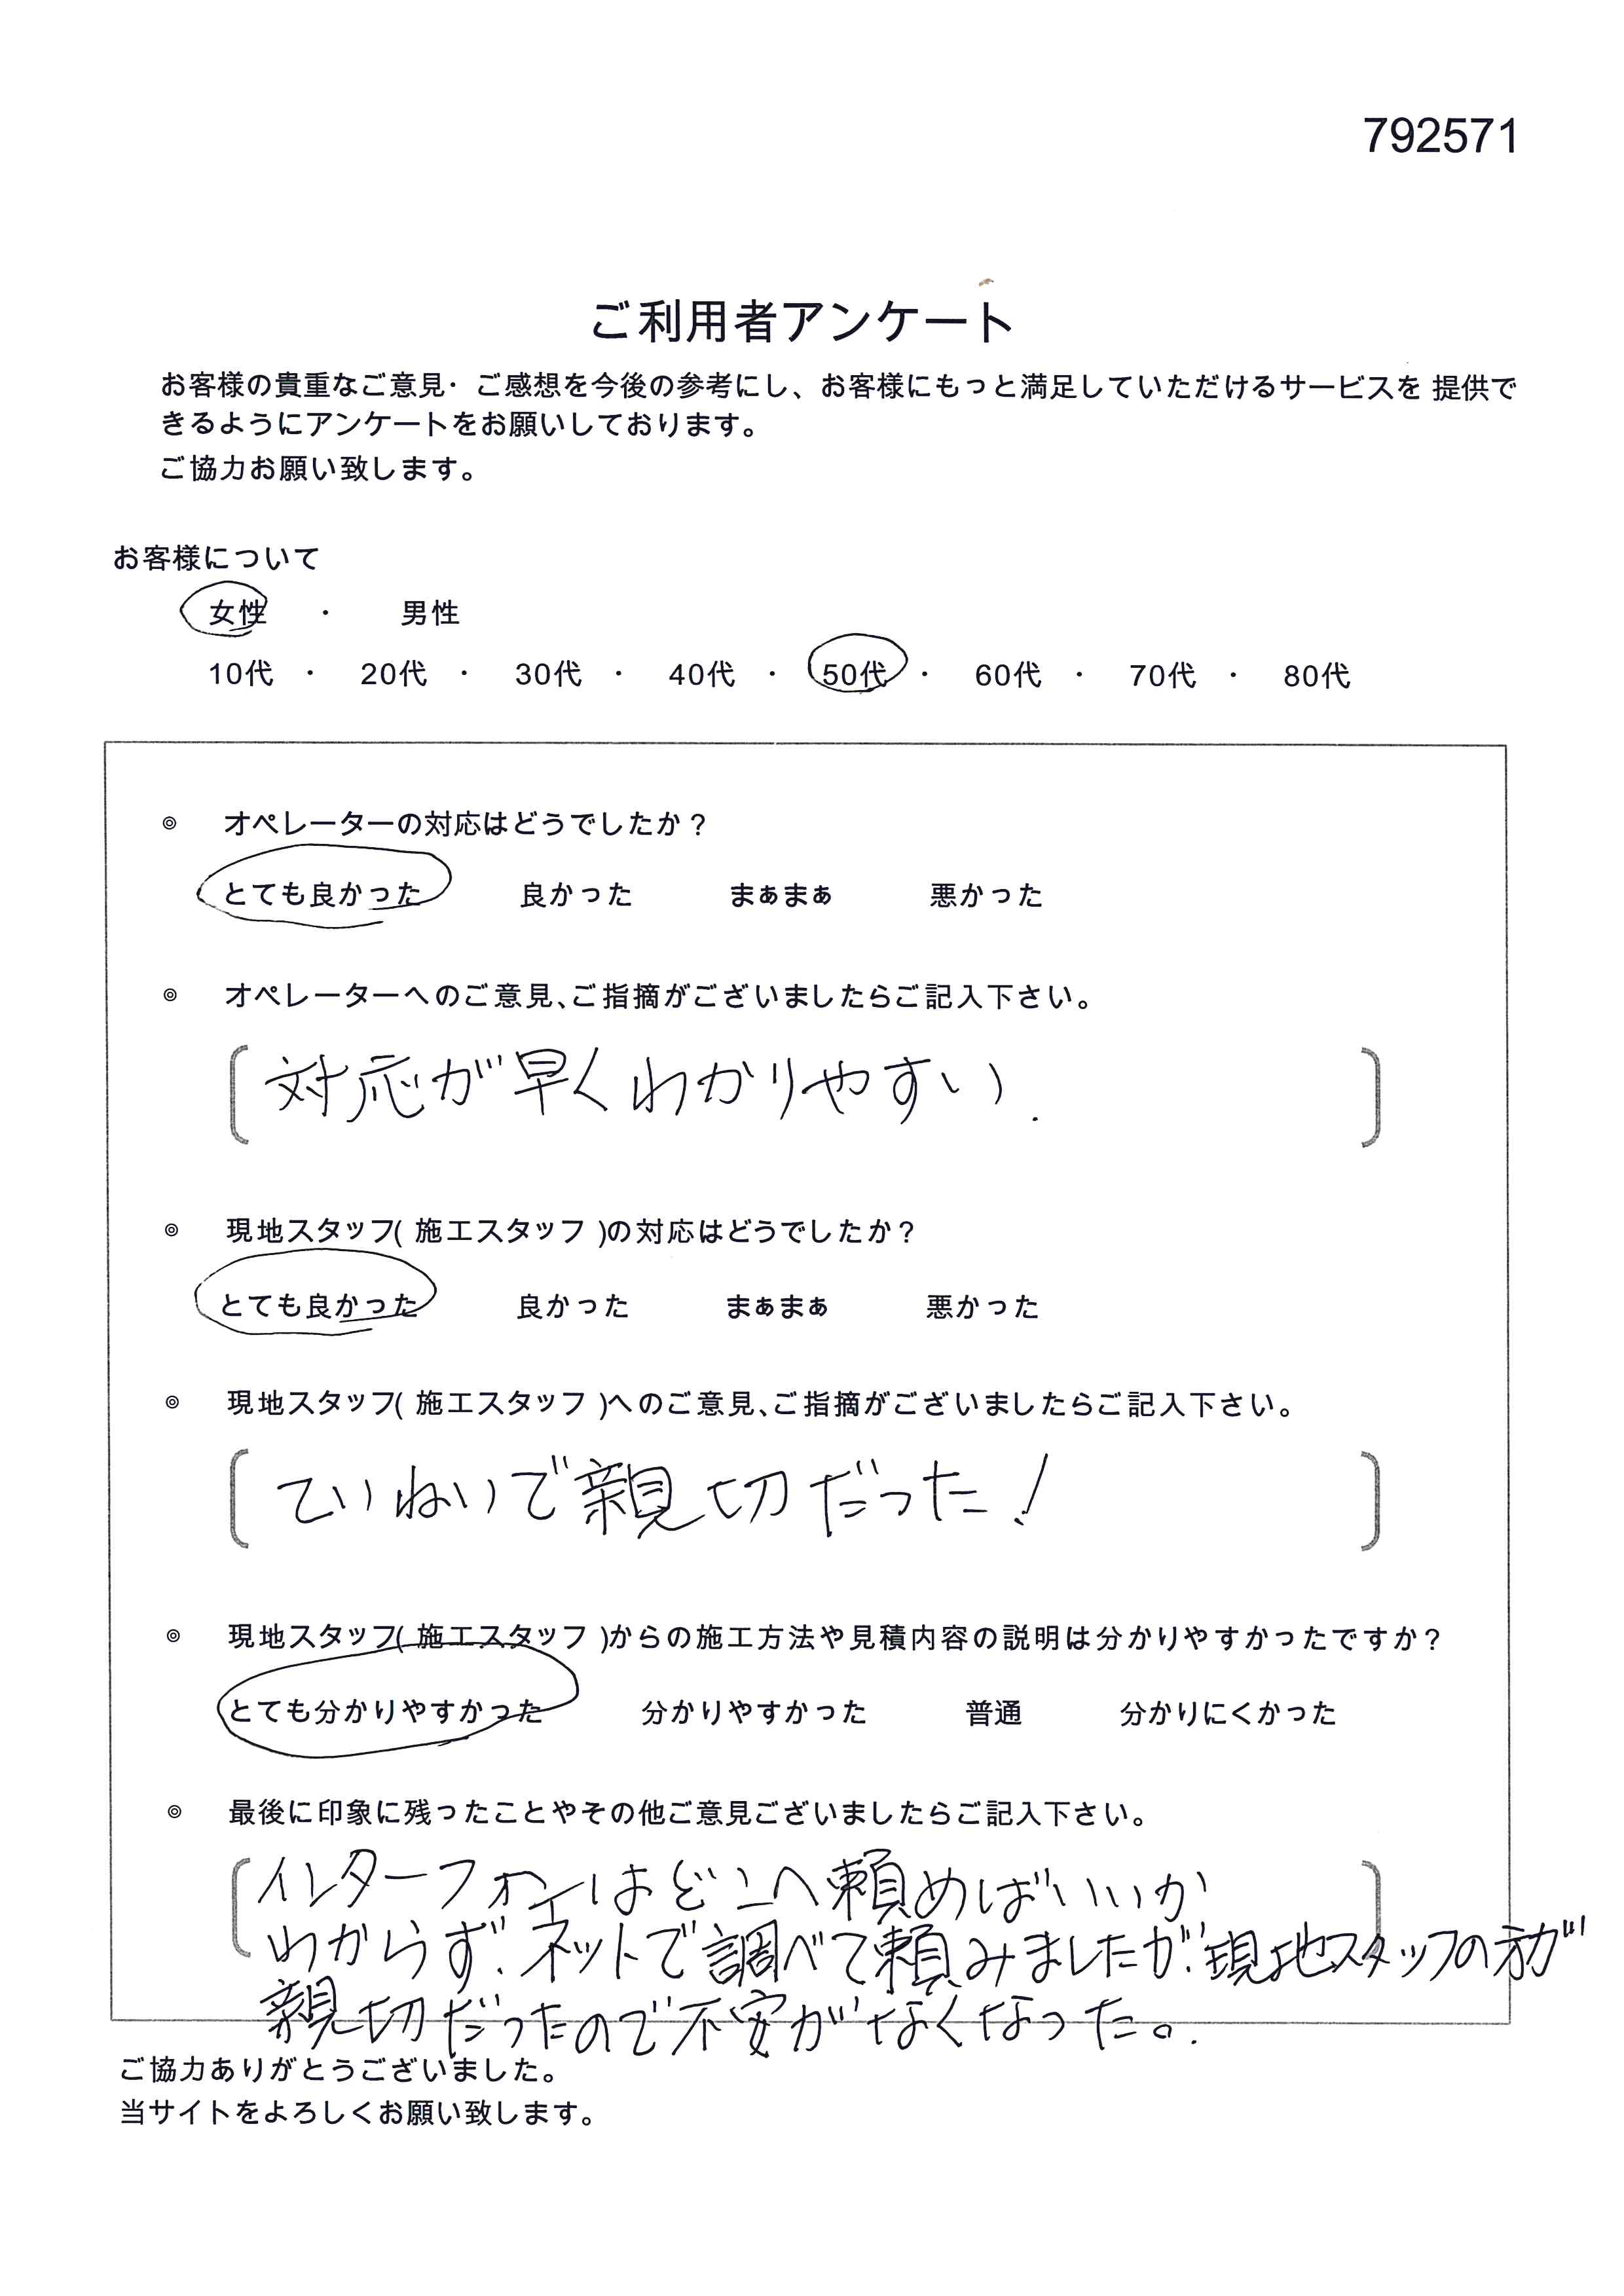 792571
ご利用者アンケート
お客様の貴重なご意見・ご感想を今後の参考にし、お客様にもっと満足していただけるサービスを 提供で
きるようにアンケートをお願いしております。
ご協力お願い致します。
お客様について
女性 ・ 男性
10代 ・ 20代 ・ 30代 ・ 40代 ・ 50代 ・ 60代 ・ 70代 ・ 80代
◎ オペレーターの対応はどうでしたか？
とても良かった 良かった まぁまぁ 悪かった
◎ オペレーターへのご意見、ご指摘がございましたらご記入下さい。
対応が早くわかりやすい.
◎ 現地スタッフ( 施工スタッフ )の対応はどうでしたか？
とても良かった 良かった まぁまぁ 悪かった
◎ 現地スタッフ( 施工スタッフ )へのご意見、ご指摘がございましたらご記入下さい。
ていねいで親切だった！
◎ 現地スタッフ( 施工スタッフ )からの施工方法や見積内容の説明は分かりやすかったですか？
とても分かりやすかった 分かりやすかった 普通 分かりにくかった
◎ 最後に印象に残ったことやその他ご意見ございましたらご記入下さい。
インターフォンはどこへ頼めばいいか
わからず、ネットで調べて頼みましたが、現地スタッフの方が
親切だったので不安がなくなった。
ご協力ありがとうございました。
当サイトをよろしくお願い致します。